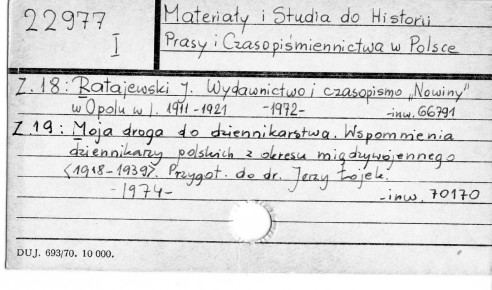 22977
I
Materiały i Studia do Historii
Prasy i Czasopiśmiennictwa w Polsce
Z. 18: Ratajewski J. Wydawnictwo i czasopismo „Nowiny"
w Opolu w l. 1911-1921 -1972- -inw. 66791
Z. 19: Moja droga do dziennikarstwa. Wspomnienia
dziennikarzy polskich z okresu międzywojennego
<1918-1939>. Przygot. do dr. Jerzy Łojek.
-1974- -inw. 70170
DUJ. 693/70. 10 000.